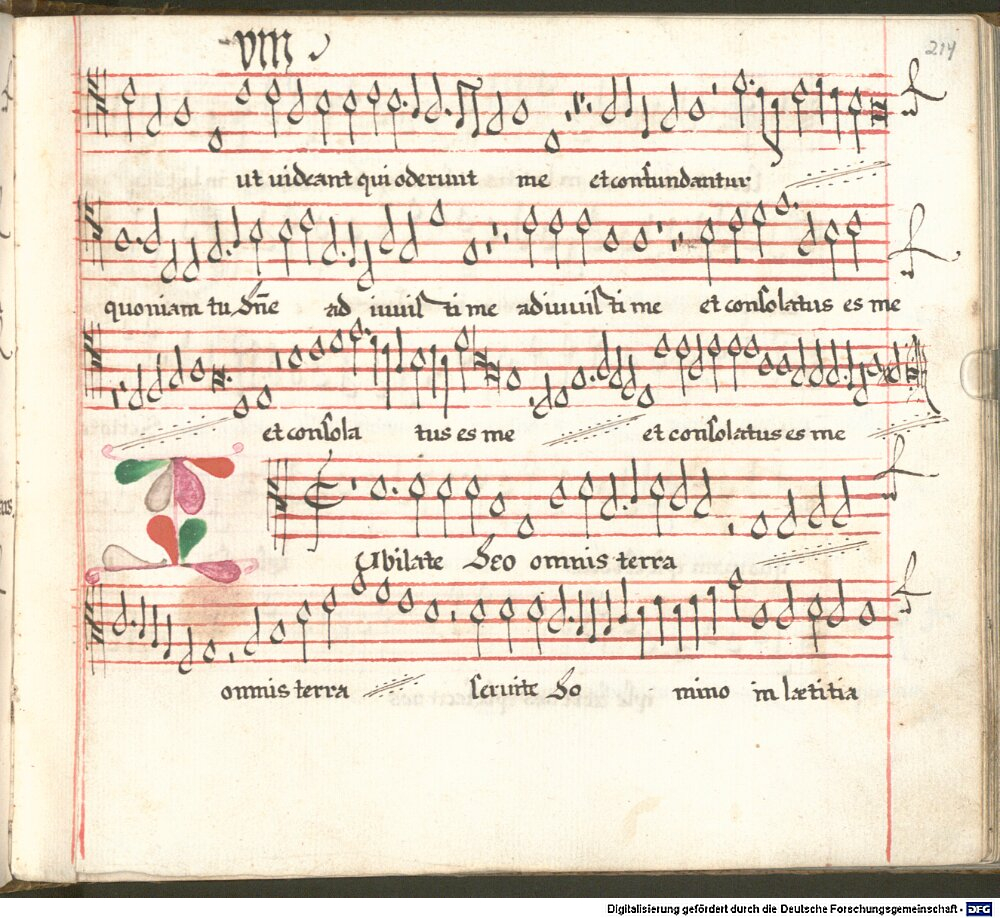 VIII
214
ut uideant qui oderunt me et confundantur
quoniam tu dn̄e ad iuuis ti me adiuuis ti me et consolatus es me
et consola tus es me et consolatus es me
Iubilate deo omnis terra
omnis terra seruite do mino in lætitia
Digitalisierung gefördert durch die Deutsche Forschungsgemeinschaft - DFG